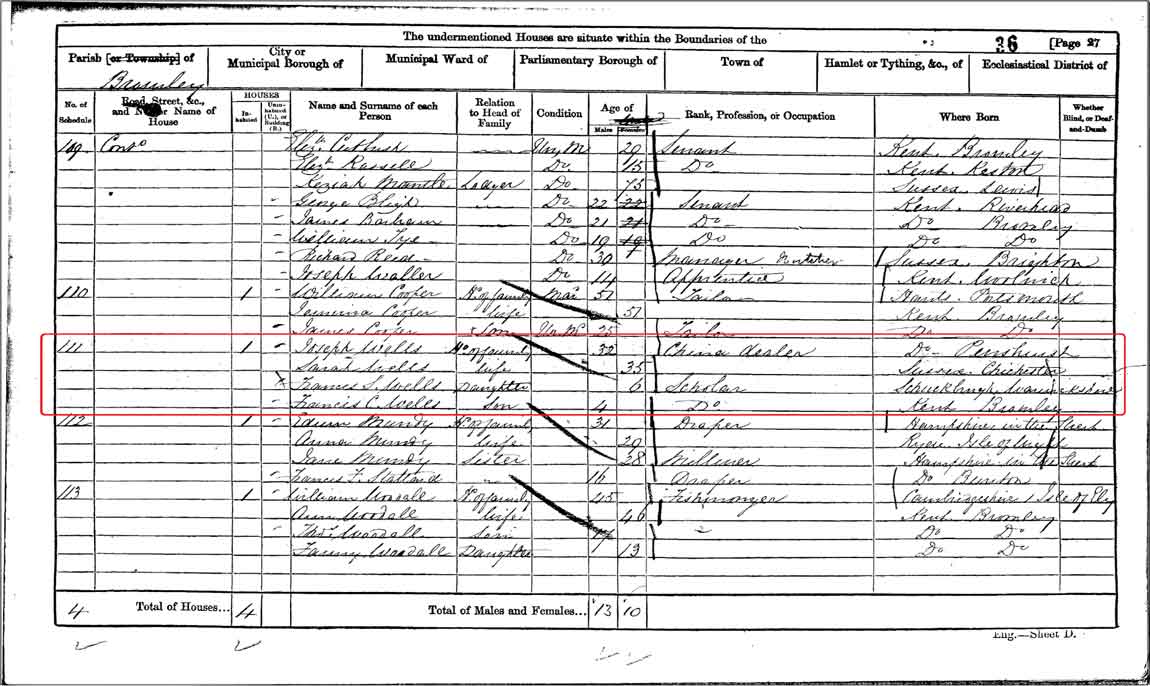 The undermentioned Houses are situate within the Boundaries of the
36 [Page 27
Parish [or Township] of
City or Municipal Borough of
Municipal Ward of
Parliamentary Borough of
Town of
Hamlet or Tything, &c., of
Ecclesiastical District of
Bromley
No. of Schedule
Road, Street, &c., and No. or Name of House
HOUSES
Inhabited
Uninhabited (U.), or Building (B.)
Name and Surname of each Person
Relation to Head of Family
Condition
Age of
Males
Females
Rank, Profession, or Occupation
Where Born
Whether Blind, or Deaf-and-Dumb
109 Contd Eliz. Unm 20 Servant Kent Bromley
Elizt Russell Do 15 Do Kent Keston
Keziah Mantle Lodger Do 75 Sussex Lewis
George Bligh Do 22 22 Servant Kent Riverhead
James Barham Do 21 21 Do Do Bromley
William Do 19 19 Do Do Do
Richard Reed Do 30 Manager Sussex Brighton
Joseph Waller Do 14 Apprentice Kent Woolwich
110 1 William Cooper Hd of family Mar 51 Tailor Hants Portsmouth
Cooper Wife 51 Kent Bromley
James Cooper Son Unm 25 Tailor Do Do
111 1 Joseph Wells Hd of family 32 China dealer Do Penshurst
Sarah Wells Wife 35 Sussex Chichester
Frances S. Wells Daughter 6 Scholar Schuckburgh Warwickshire
Francis C. Wells Son 4 Do Kent Bromley
112 1 Mundy Hd of family 31 Draper Hampshire
Anna Mundy Wife 20 Ryde Isle of Wight
Jane Mundy Sister 28 Milliner Hampshire
Frances F. 16 Draper Do
113 1 William Woodall Hd of family 45 Fishmonger Cambridgeshire Isle of Ely
Ann Woodall Wife 46 Kent Bromley
Thos. Woodall Son Do Do
Fanny Woodall Daughter 13 Do Do
4 Total of Houses... 4 Total of Males and Females... 13 10
Eng.—Sheet D.